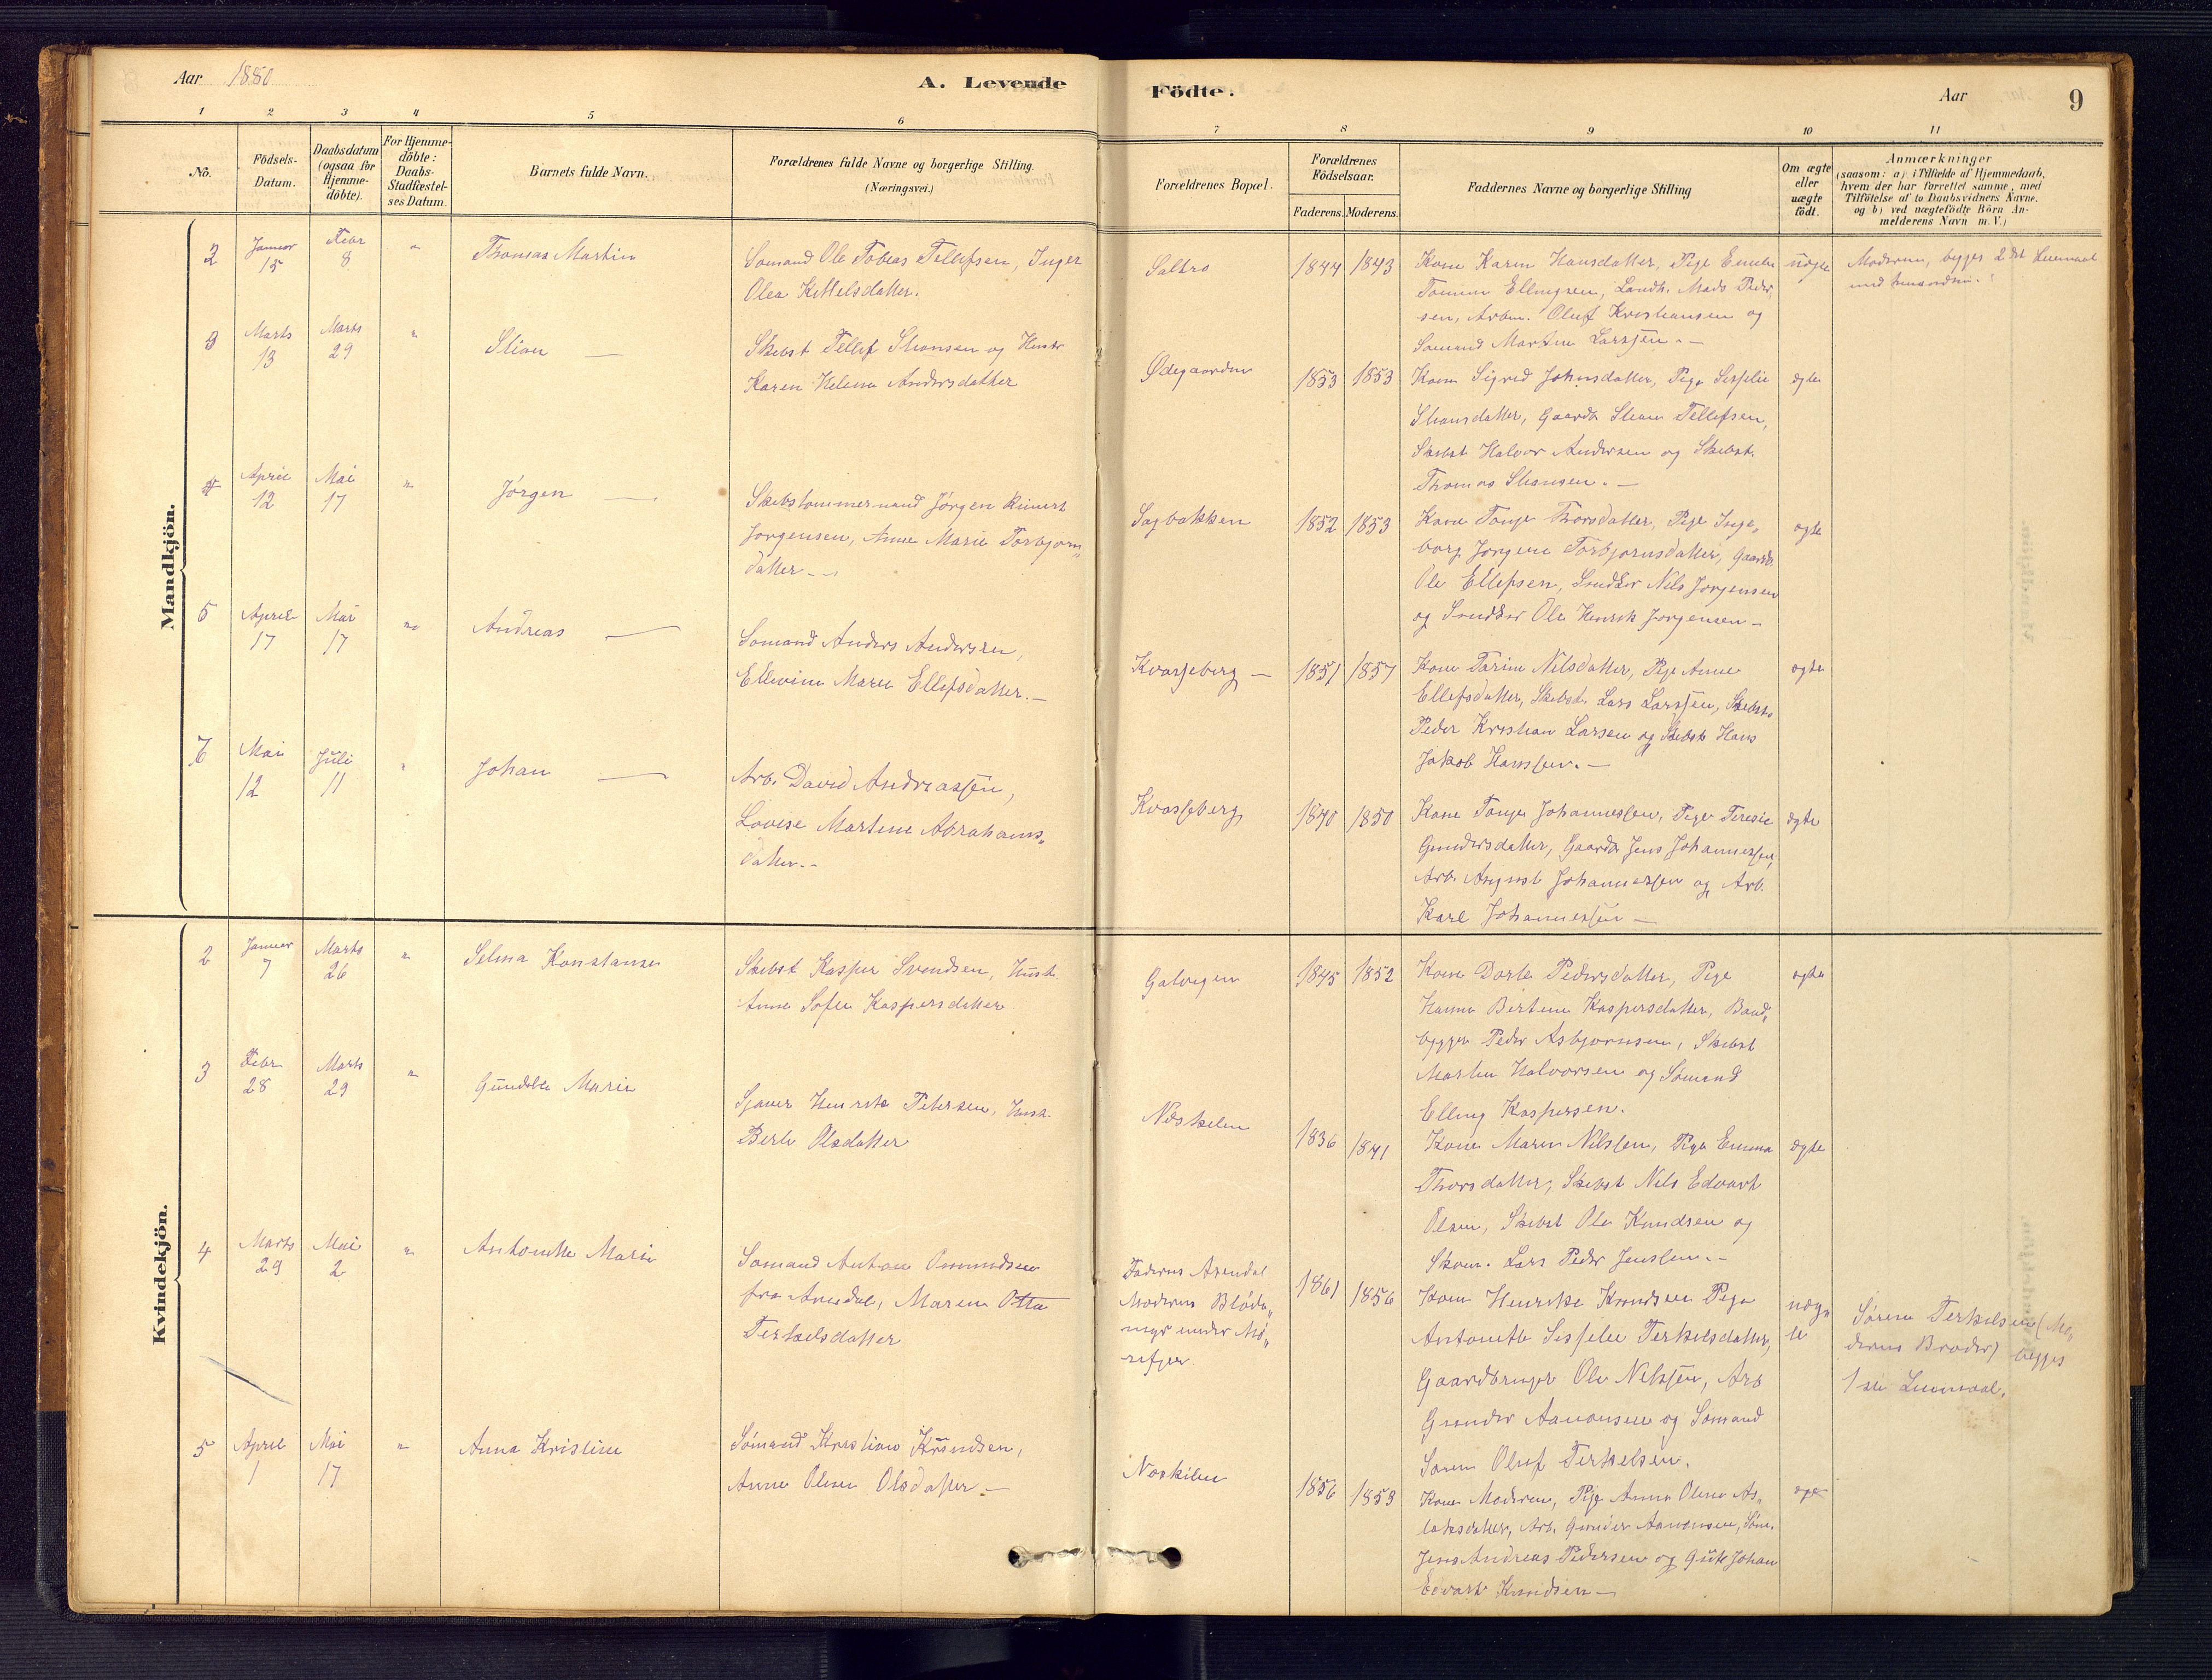 Aar 1880
A. Levende
Födte.
Aar
9
1 2 3 4 5 6 7 8 9 10 11
No.
Födsels-
Datum.
Daabsdatum
(ogsaa for
Hjemme-
döbte).
For Hjemme-
döbte:
Daabs-
Stadfæstel-
ses Datum.
Barnets fulde Navn.
Forældrenes fulde Navne og borgerlige Stilling.
(Næringsvei.)
Forældrenes Bopæl.
Forældrenes
Födselsaar.
Faderens. Moderens.
Faddernes Navne og borgerlige Stilling
Om ægte
eller
uægte
födt.
Anmærkninger
(saasom: a) i Tilfælde af Hjemmedaab,
hvem der har forrettet samme, med
Tilföielse af to Daabsvidners Navne.
og b) ved uægtefödte Börn An-
melderens Navn m. V.)
Mandkjön.
2
Januar
15
Febr
8
"
Thomas Martin
Sømand Ole Tobias Tellefsen, Inger
Olea Kittelsdatter.
Saltrø
1844 1843
Kone Karen Hansdatter, Pige
Ellingsen, Landh. Mads Peder
sen, Arbm. Oluf Kristiansen og
Sømand Martin Larssen. -
uægte
Moderen, begges 2det Leiermaal
3
Marts
13
Marts
29
"
Stian -
Skibst Tellef Stiansen og Hustr
Karen Helene Andersdatter
Ødegaarden
1853 1853
Kone Sigred Johnsdatter, Pige Sesselie
Stiansdatter, Gaardb Stian Tellefsen,
Skibst Halvor Andersen og Skibst.
Thomas Stiansen. -
ægte
4
April
12
Mai
17
"
Jørgen -
Skibstømmermand Jørgen Reinert
Jørgensen, Anne Marie Torbjørn„
datter -
Sagbakken
1852 1853
Kone Tonje Thorsdatter, Pige Inge„
borg Jørgine Torbjørnsdatter, Gaardb.
Ole Ellefsen, Snedker Nils Jørgensen
og Snedker Ole Henrik Jørgensen -
ægte
5
April
17
Mai
17
"
Andreas -
Sømand Anders Andersen,
Ellevine Marie Ellefsdatter. -
Kvasseberg -
1851 1857
Kone Tarine Nilsdatter, Pige Anne
Ellefsdatter, Skibst. Lars Larssen, Skibst.
Peder Kristian Larsen og Skibst Hans
Jakob Hanssen. -
ægte
6
Mai
12
Juli
11
"
Johan -
Arb. David Andreassen,
Lovise Martine Abrahams„
datter. -
Kvasseberg
1840 1850
Kone Tonje Johannessen, Pige Teresie
Gundersdatter, Gaardb Jens Johannessen,
Arb. August Johannessen og Arb.
Karl Johannessen -
ægte
Kvindekjön.
2
Januar
7
Marts
26
"
Selma Konstanse
Skibst Kasper Svendsen, Hust.
Anne Sofie Kaspersdatter
Galeigen
1845 1852
Kone Dorte Pedersdatter, Pige
Hanna Bertine Kaspersdatter, Baad„
bygger Peder Asbjørnsen, Skibst
Martin Halvorsen og Sømand
Elling Kaspersen.
ægte
3
Febr
28
Marts
29
"
Gunilde Marie
Sjauer Henrik Petersen, Hust.
Berte Olsdatter
Neskilen
1836 1841
Kone Maren Nilssen, Pige Emma
Thorsdatter, Skibst Nils Edvart
Olsen, Skibst Ole Knudsen og
Skom. Lars Peder Jenssen. -
ægte
4
Marts
29
Mai
2
"
Antonette Marie
Sømand Anton Omundsen
fra Arendal, Maren Otta
Terkelsdatter
Faderens Arendal
Moderens Bløde„
myr under Mø„
refjer
1861 1856
Kone Henrikke Knudsen Pige
Antonette Sesselie Terkelsdatter,
Gaardbruger Ole Nilssen, Arb
Gunder Aanonsen og Sømand
Søren Oluf Terkelsen.
uæg„
te
Søren Terkelsen (Mo„
derens Broder) begges
1ste Leiermaal.
5
April
1
Mai
17
"
Anna Kristine
Sømand Kristian Knudsen,
Anne Oline Olsdatter. -
Neskilen
1856 1853
Kone Moderen, Pige Anna Olene As„
laksdatter, Arb. Gunder Aanonsen, Søm.
Jens Andreas Pedersen og Gut Johan
Edvart Knudsen -
ægte